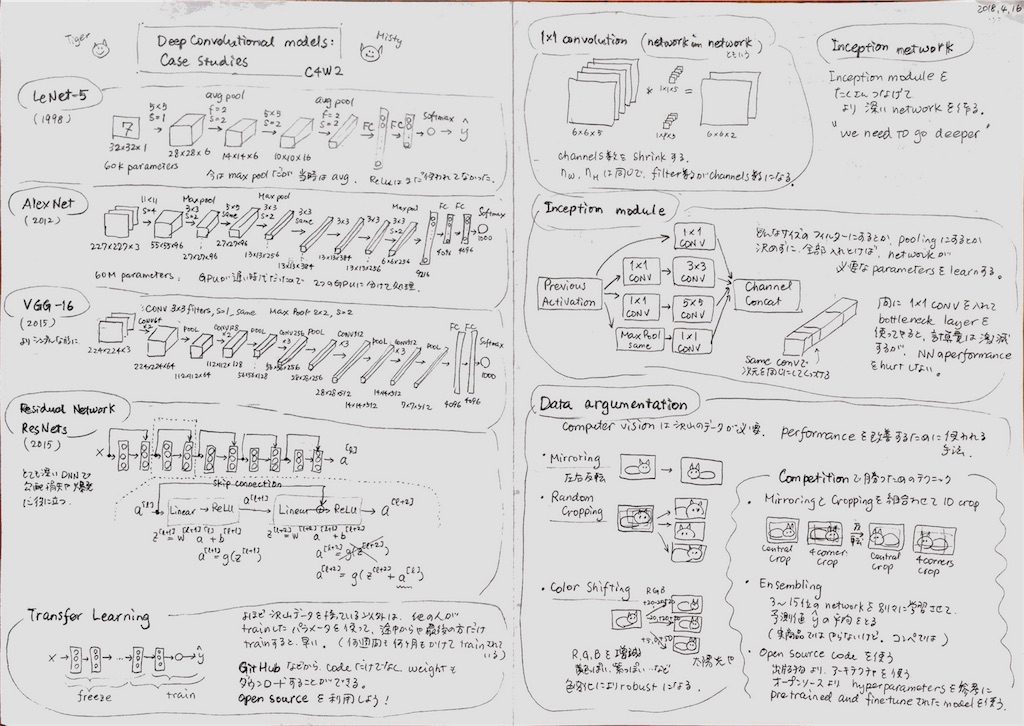 2018.4.16
Tiger
Misty
Deep Convolutional models:
Case Studies
C4W2
LeNet-5
(1998)
7
32×32×1
5×5
s=1
28×28×6
avg pool
f=2
s=2
14×14×6
5×5
s=1
10×10×16
avg pool
f=2
s=2
FC
FC
Softmax
ŷ
60K parameters
今は max pool だが 当時は avg. ReLuはまだ使われてなかった。
AlexNet
(2012)
227×227×3
11×11
s=4
55×55×96
Max pool
3×3
s=2
27×27×96
5×5
same
27×27×96
Max pool
3×3
s=2
13×13×256
3×3
same
13×13×384
3×3
13×13×384
3×3
13×13×256
Max pool
3×3
s=2
6×6×256
9216
FC
4096
FC
4096
Softmax
1000
60M parameters. GPUが遅い時代だったので 2つのGPUに分けて処理。
VGG-16
(2015)
よりシンプルな形に
CONV 3×3 filters, s=1, same Max Pool 2×2, s=2
224×224×3
CONV64
×2
224×224×64
POOL
112×112×64
CONV128
×2
112×112×128
POOL
56×56×128
CONV256
×3
56×56×256
POOL
28×28×256
CONV512
×3
28×28×512
POOL
14×14×512
CONV512
×3
14×14×512
POOL
7×7×512
FC
4096
FC
4096
Softmax
1000
Residual Network
ResNets
(2015)
x
a[l]
とても深い DNN で
勾配消失や爆発
に役に立つ。
Skip connection
a[l]
Linear → ReLU
a[l+1]
Linear → ReLU
a[l+2]
z[l+1] = W[l+1] a[l] + b[l+1]
a[l+1] = g(z[l+1])
z[l+2] = W[l+2] a[l+1] + b[l+2]
a[l+2] = g(z[l+2])
a[l+2] = g(z[l+2] + a[l])
Transfer Learning
x
ŷ
freeze
train
よほど沢山データを持っている以外は、他の人が
trainした パラメータを使って、途中からや最後の方だけ
trainすると、早い。
GitHub などから、codeだけでなく weight も
ダウンロードすることができる。
Open source を利用しよう!
1×1 convolution (network in network)
ともいう
6×6×5
*
1×1×5
=
6×6×2
channels数を shrink する。
nW, nH は同じで、filter数が channels数になる。
Inception network
Inception module を
たくさんつなげて
より 深い network を作る。
"we need to go deeper"
Inception module
Previous
Activation
1×1
CONV
1×1
CONV
3×3
CONV
1×1
CONV
5×5
CONV
MaxPool
same
1×1
CONV
Channel
Concat
どんなサイズのフィルターにするとか、poolingにするとか
決めずに、全部入れとけば、networkが
必要な parameters を learn する。
same convで
次元を同じにしてくっつける
間に 1×1 CONV を入れて
bottleneck layer を
使ってやると、計算量は激減
するが、NNのperformance
を hurt しない。
Data argumentation
Computer vision は 沢山のデータが必要. performance を改善するために使われる
手法.
・Mirroring
左右反転
・Random
Cropping
・Color Shifting
RGB
+20-20+20
-20,+20+20
+5,0,+50
R,G,B を 増減
色変化により robust になる。
Competition で 勝つためのテクニック
・Mirroring と Cropping を 組合わせて 10 crop
Central
crop
4 corner
crop
反転
Central
crop
4 corners
crop
・Ensembling
3〜15位の network を 別々に学習させて、
予測値 ŷ の平均をとる
(実商品では やらないけど、コンペでは)
・Open source code を 使う
出版物 より、アーキテクチャ を 使う
オープンソース より hyperparameters を 参考に
pretrained and finetune された model を 使う。